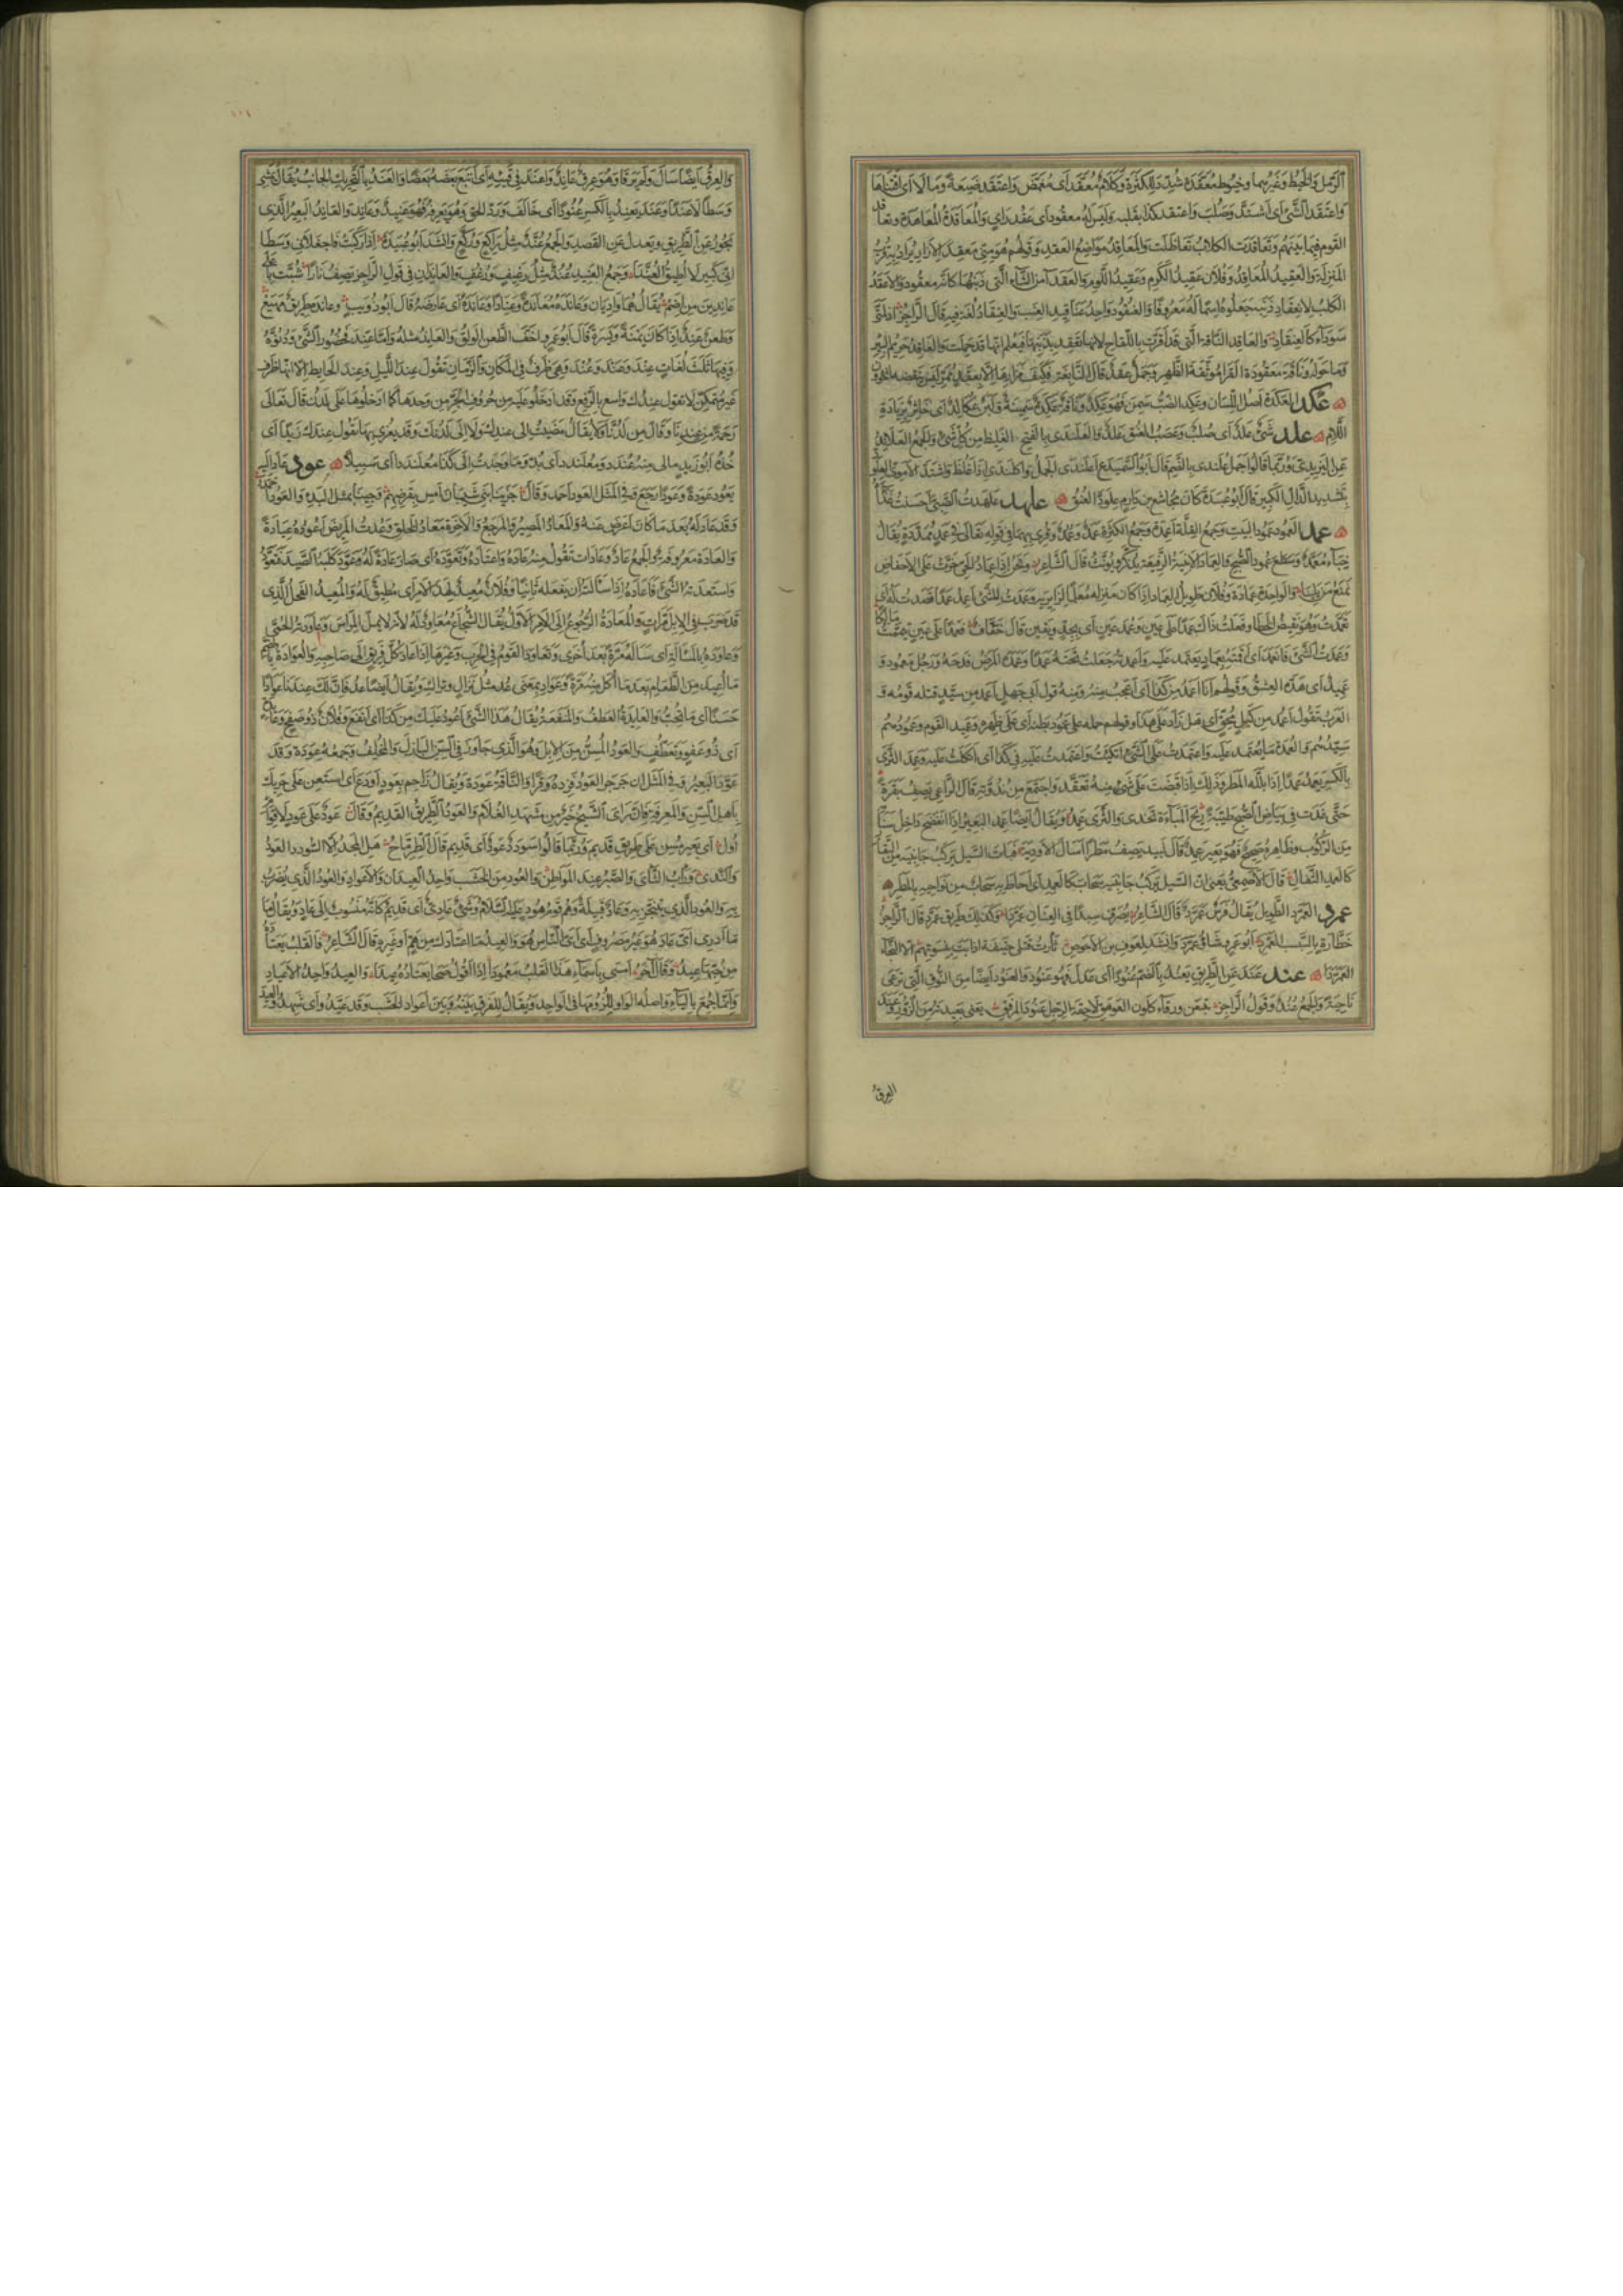 الرمل والخيط وغيرهما وخيوط معقدة شدد للكثرة وكلام معقد اى مغمض واعتقد ضيعة ومالا اى اقتناها
واعتقد الشئ اى اشتد وصلب واعتقد كذا بقلبه وليس له معقود اى عقد راى والمعاقدة المعاهدة وتعاقد
القوم فيما بينهم وتعاقدت الكلاب تعاظلت والمعاقد مواضع العقد وقولهم هو منى معقد الازار يراد به قرب
المنزلة والعقيد المعاقد وفلان عقيد الكرم وعقيد اللوم والعقداء من الشاء التى ذنبها كانه معقود والاعقد
الكلب لانعقاد ذنبه جعلوه اسما له معروفا والعنقود واحد عناقيد العنب والعنقاد لغة فيه قال الراجز اذ لمتى
سوداء كالعنقاد والعاقد الناقة التى قد اقرت باللقاح لانها تعقد بذنبها فيعلم انها قد حملت والعاقد حريم البئر
وما حوله وناقة معقودة القرا موثقة الظهر وجمل عقد قال النابغة فكيف مزارها الا بعقد ممر ليس ينقضه الخؤون
عكد العكدة اصل اللسان وعكد الضب سمن فهو عكد وناقة عكدة سمينة ولبن عكالد اى خاثر بزيادة
اللام علد شئ علد اى صلب وعصب العنق علد والعلندى بالفتح الغليظ من كل شئ والجمع العلاند
عن اليزيدى وربما قالوا جمل علندى بالضم قال ابو السميدع اعلندى الجمل واكلندى اذا غلظ واشتد الاموى العلود
بتشديد الدال الكبير قال ابو عبيدة كان مجاشع بن دارم علود العنق علهد علهدت الصبى احسنت غذاءه
عمد العمود عمود البيت وجمع القلة اعمدة وجمع الكثرة عمد وعمد وقرئ بهما فى قوله تعالى فى عمد ممددة يقال
خباء معمد وسطع عمود الصبح والعماد الابنية الرفيعة يذكر ويونث قال الشاعر ونحن اذا عماد الحى خرت على الاحفاض
نمنع من يلينا والواحدة عمادة وفلان طويل العماد اذا كان منزله معلما لزايريه وعمدت للشئ اعمد عمدا قصدت له اى
تعمدت وهو نقيض الخطا وفعلت ذاك عمدا على عين وعمد عين اى بجد ويقين قال خفاف فعمدا على عين تيممت مالكا
وعمدت الشئ فانعمد اى اقمته بعماد يعتمد عليه واعمدته جعلت تحته عمدا وعمده المرض فدحه ورجل معمود و
عميد اى هده العشق وقولهم انا اعمد من كذا اى اعجب منه ومنه قول ابى جهل اعمد من سيد قتله قومه و
العرب تقول اعمد من كيل محق اى هل زاد على هذا وقولهم حمله على عمود بطنه اى على ظهره وعميد القوم وعمودهم
سيدهم والعمدة ما يعتمد عليه واعتمدت على الشئ اتكيت واعتمدت عليه فى كذا اى اتكلت عليه وعمد الثرى
بالكسر يعمد عمدا اذا بلله المطر وذلك اذا قبضت على شئ منه تعقد واجتمع من ندوته قال الراعى يصف بقرة
حتى غدت فى بياض الصبح طيبة ريح المباءة تخدى والثرى عمد ويقال ايضا عمد البعير اذا انفضخ داخل سنامه
من الركوب وظاهره صحيح فهو بعير عمد قال لبيد يصف مطرا اسال الاودية فبات السيل يركب جانبيه من البقار
كالعمد الثقال قال الاصمعى يعنى ان السيل يركب جانبيه سحاب كالعمد اى احاط به سحاب من نواحيه بالمطر
عمرد العمرد الطويل يقال فرس عمرد قال الشاعر يصرف سبدا فى العنان عمردا وكذلك طريق عمرد قال الراجز
خطارة بالسبسب العمرد ابو عمرو شاو عمرد وانشد لعوف بن الاحوص ثارت بهم قتلى حنيفة اذ ابت بنسوتهم الا النجاء
العمردا عند عند عن الطريق يعند بالضم عنودا اى عدل فهو عنود والعنود ايضا من النوق التى ترعى
ناحية والجمع عند وقول الراجز يتبعن ورقاء كلون العوهق لاحقة الرجل عنود المرفق يعنى بعيدته من الزور وعند
العرق
والعرق ايضا سال ولم يرقا وهو عرق عاند واعند فى قيئه اى اتبع بعضه بعضا والعند بالتحريك الجانب يقال يمشى
وسطا لا عندا وعند يعند بالكسر عنودا اى خالف ورد الحق وهو يعرفه فهو عنيد وعاند والعاند البعير الذى
يجور عن الطريق ويعدل عن القصد والجمع عند مثل راكع وركع وانشد ابو عبيدة اذا ركبت فاجعلانى وسطا
انى كبير لا اطيق العندا وجمع العنيد عند مثل رغيف ورغف والعاندان فى قول الراجز يصف نارا شبت باعلى
عاندين من اضم يقال هما واديان وعانده معاندة وعنادا وعانده اى عارضه قال ابو ذويب وعانده طريق مهيع
وطعن عند اذا كان يمنة ويسرة قال ابو عمرو اخف الطعن الولق والعاند مثله واما عند فحضور الشئ ودنوه
وفيها ثلث لغات عند وعند وعند وهى ظرف فى المكان والزمان تقول عند الليل وعند الحايط الا انها ظرف
غير متمكن لا تقول عندك واسع بالرفع وقد ادخلوا عليه من حروف الجر من وحدها كما ادخلوها على لدن قال تعالى
رحمة من عندنا وقال من لدنا ولا يقال مضيت الى عندك ولا الى لدنك وقد يغرى بها تقول عندك زيدا اى
خذه ابو زيد مالى منه عندد ومعلندد اى بد وما وجدت الى كذا معلنددا اى سبيلا عود عاد اليه
يعود عودة وعودا رجع وفى المثل العود احمد وقال جزينا بنى شيبان امس بقرضهم وجينا بمثل البدء والعود احمد
وقد عاد له بعد ما كان اعرض عنه والمعاد المصير والمرجع والاخرة معاد الخلق وعدت المريض اعوده عيادة
والعادة معروفة والجمع عاد وعادات تقول منه عاده واعتاده وتعوده اى صار عادة له وعود كلبه الصيد فتعوده
واستعدته الشئ فاعاده اذا سالته ان يفعله ثانيا وفلان معيد لهذا الامر اى مطيق له والمعيد الفحل الذى
قد ضرب فى الابل مرات والمعاودة الرجوع الى الامر الاول يقال الشجاع معاود له لانه لا يمل المراس وعاودته الحمى
وعاوده بالمسالة اى ساله مرة بعد اخرى وتعاود القوم فى الحرب وغيرها اذا عاد كل فريق الى صاحبه والعوادة بالضم
ما اعيد من الطعام بعد ما اكل منه مرة وعواد بمعنى عد مثل نزال وتراك ويقال ايضا عد فان لك عندنا عوادا
حسنا اى ما تحب والعايدة العطف والمنفعة يقال هذا الشئ اعود عليك من كذا اى انفع وفلان ذو صفح وعايدة
اى ذو عفو وتعطف والعود المسن من الابل وهو الذى جاوز فى السن البازل والمخلف وجمعه عودة وقد
عود البعير وفى المثل ان جرجر العود فزده وقرا والناقة عودة ويقال زاحم بعود او دع اى استعن على حربك
باهل السن والمعرفة فان راى الشيخ خير من مشهد الغلام والعود الطريق القديم وقال عود على عود لاقوام
اول اى بعير مسن على طريق قديم وربما قالوا سودد عود اى قديم قال الطرماح هل المجد الا السودد العود
والندى وراب الثاى والصبر عند المواطن والعود من الخشب واحد العيدان والاعواد والعود الذى يضرب
به والعود الذى يتبخر به وعاد قبيلة وهم قوم هود عليه السلام وشئ عادى اى قديم كانه منسوب الى عاد ويقال
ما ادرى اى عاد هو غير مصروف اى اى الناس هو والعيد ما اعتادك من هم او غيره قال الشاعر فالقلب يعتاده
من حبها عيد وقال آخر امسى باسماء هذا القلب معمودا اذا اقول صحا يعتاده عيدا والعيد واحد الاعياد
وانما جمع بالياء واصله الواو للزومها فى الواحد ويقال للفرق بينه وبين اعواد الخشب وقد عيدوا اى شهدوا العيد